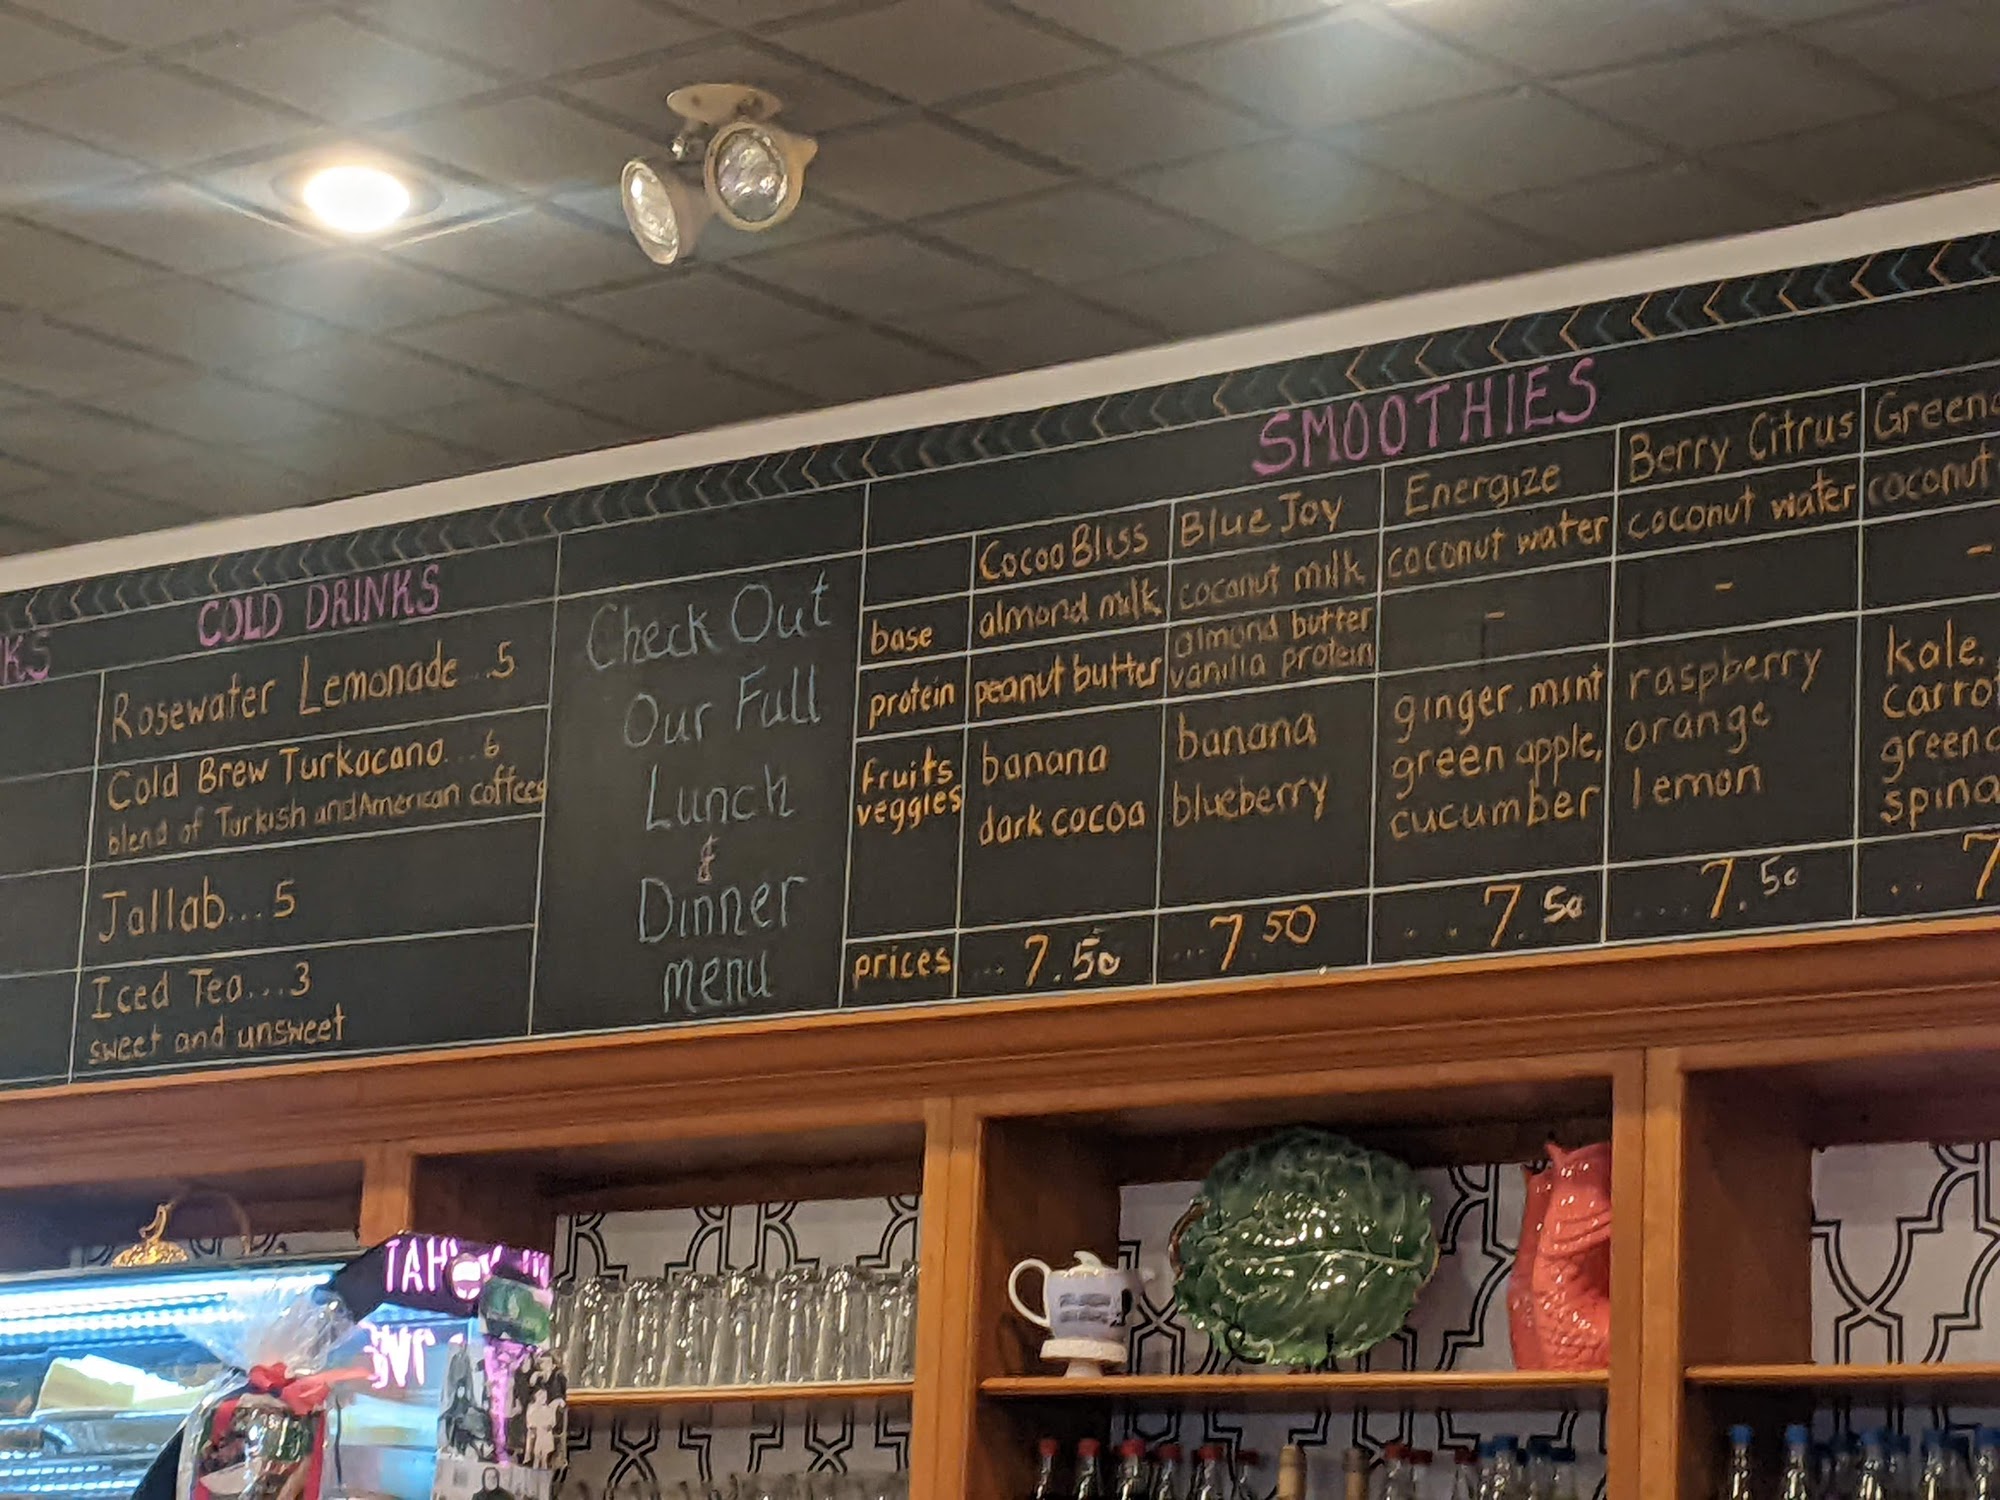 COLD DRINKS
Rosewater Lemonade...5
Cold Brew Turkacano...6
blend of Turkish and American coffees
Jallab...5
Iced Tea...3
sweet and unsweet
Check Out
Our Full
Lunch
&
Dinner
menu
SMOOTHIES
Cocoa Bliss Blue Joy Energize Berry Citrus
base almond milk coconut milk coconut water coconut water coconut
protein peanut butter almond butter - - -
vanilla protein
fruits banana banana ginger, mint raspberry kale,
veggies dark cocoa blueberry green apple, orange
cucumber lemon
prices ...7.50 ...7.50 ...7.50 ...7.50 ...7